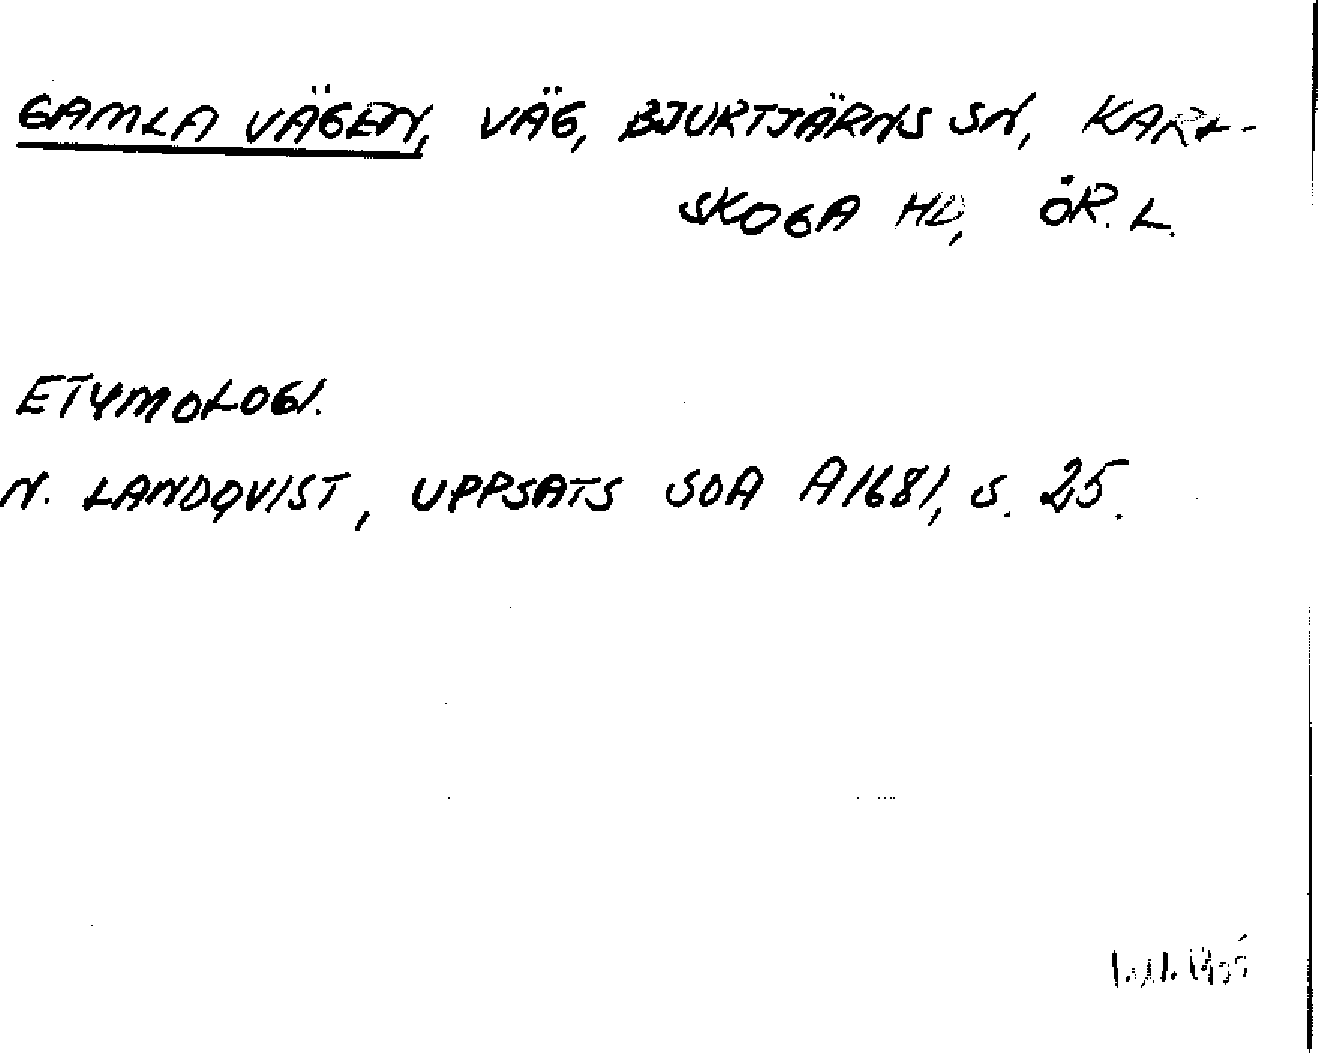 GAMLA VÄGEN, VÄG, BJURTJÄRNS SN, KARL-
SKOGA HD, ÖR. L.
ETYMOLOGI.
N. LANDQVIST, UPPSATS SOA A1681, S. 25.